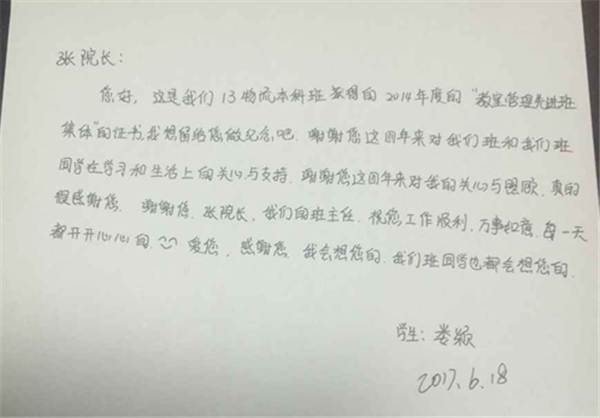 张院长:
您好,这是我们13物流本科班获得的2014年度的“教室管理先进班
集体”的证书,我想留给您做纪念吧.谢谢您这四年来对我们班和我们班
同学在学习和生活上的关心与支持.谢谢您这四年来对我的关心与照顾.真的
很感谢您.谢谢您.张院长,我们的班主任.祝您工作顺利,万事如意.每一天
都开开心心的.爱您,感谢您.我会想您的.我们班同学也都会想您的.
学生:娄颖
2017.6.18